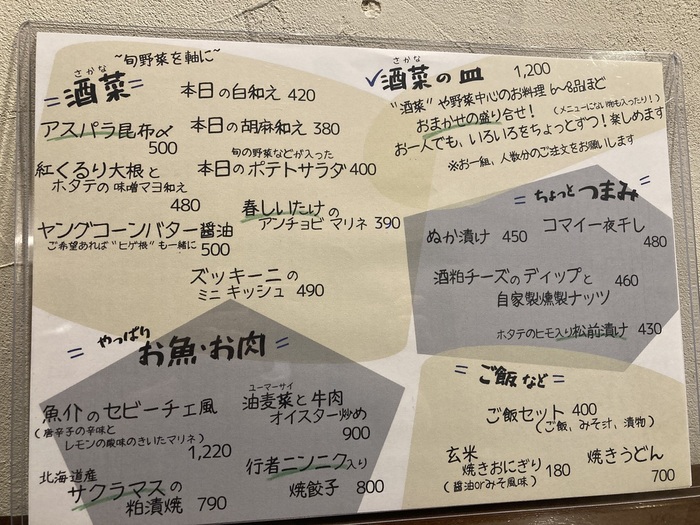 ~旬野菜を軸に~
さかな
=酒菜=
本日の白和え 420
アスパラ昆布〆
500
本日の胡麻和え 380
紅くるり大根と
ホタテの味噌マヨ和え
480
旬の野菜などが入った
本日のポテトサラダ 400
春しいたけの
アンチョビマリネ 390
ヤングコーンバター醤油
ご希望あれば"ヒゲ根"も一緒に 500
ズッキーニの
ミニキッシュ 490
さかな
✓酒菜の皿 1,200
"酒菜"や野菜中心のお料理 6~8品ほど
おまかせの盛り合せ!(メニューにない物も入ったり!)
お一人でも、いろいろをちょっとずつ!楽しめます
※お一組、人数分のご注文をお願いします
=ちょっとつまみ=
ぬか漬け 450
コマイ一夜干し
480
酒粕チーズのディップと 460
自家製燻製ナッツ
ホタテのヒモ入り松前漬け 430
=やっぱり
お魚・お肉=
魚介のセビーチェ風
(唐辛子の辛味と
レモンの酸味のきいたマリネ)
1,220
ユーマーサイ
油麦菜と牛肉
オイスター炒め
900
北海道産
サクラマスの
粕漬焼 790
行者ニンニク入り
焼餃子 800
=ご飯など=
ご飯セット 400
(ご飯、みそ汁、漬物)
玄米
焼きおにぎり 180
(醤油orみそ風味)
焼きうどん
700